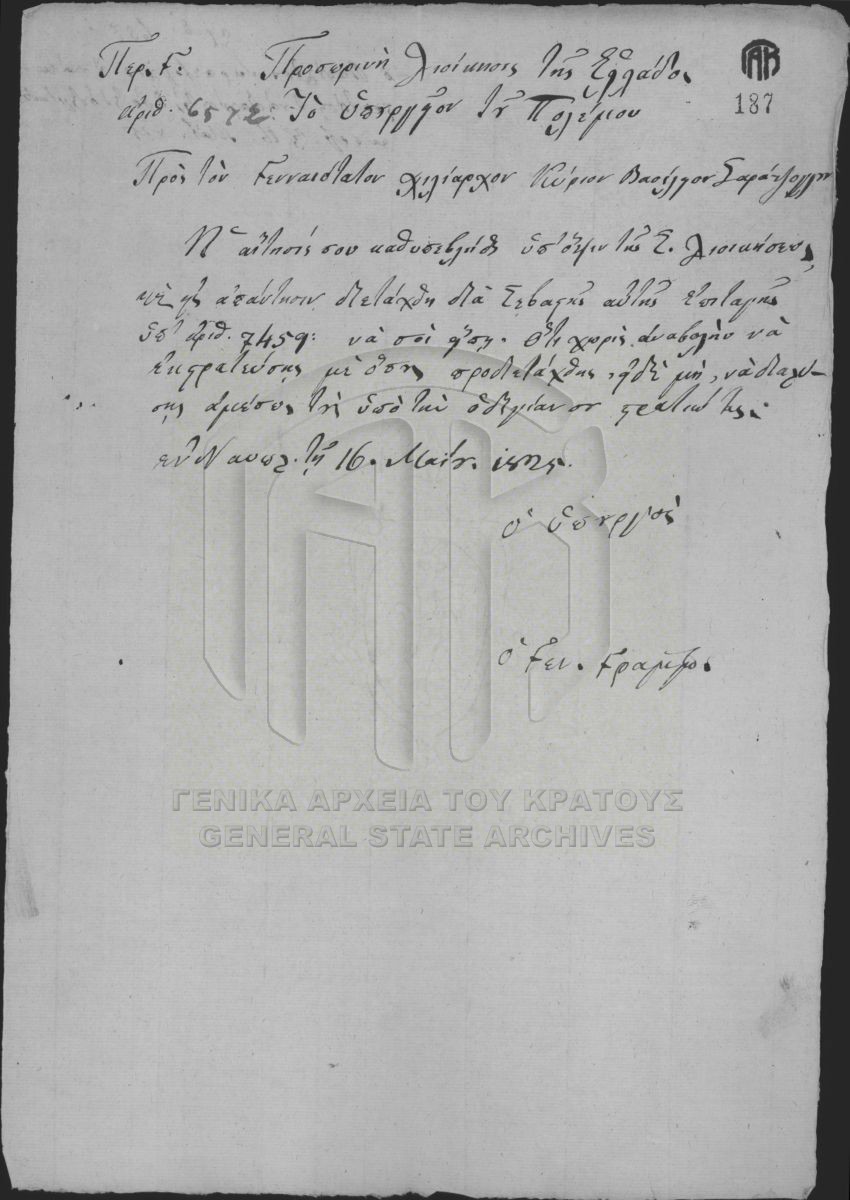 Περ. Γ: Προσωρινὴ Διοίκησις τῆς Ἑλλάδος
ἀριθ. 6572. Τὸ ὑπουργεῖον τοῦ Πολέμου
187
Πρὸς τὸν Γενναιότατον χιλίαρχον Κύριον Βασίλειον
Ἡ αἴτησίς σου καθυπεβλήθη ὑπ' ὄψιν τῆς Σ. Διοικήσεως,
ἀπάντησιν διετάχθη διὰ Σεβαστῆς αὐτῆς ἐπιταγῆς
ὑπ' ἀριθ. 7459: νὰ σοὶ εἴπῃ. ὅτι χωρὶς ἀναβολὴν νὰ
ἐκστρατεύσῃς μὲ ὅσους προδιετάχθης, εἰδὲ μὴ, νὰ διαλύ-
σῃς ἀμέσως τοὺς ὑπὸ τὴν ὁδηγίαν σου στρατιώτας.
ἐν Ναυπλ. τῇ 16. Μαΐου. 1825.
ὁ ὑπουργὸς
ὁ Γεν. Γραμμ.
ΓΕΝΙΚΑ ΑΡΧΕΙΑ ΤΟΥ ΚΡΑΤΟΥΣ
GENERAL STATE ARCHIVES